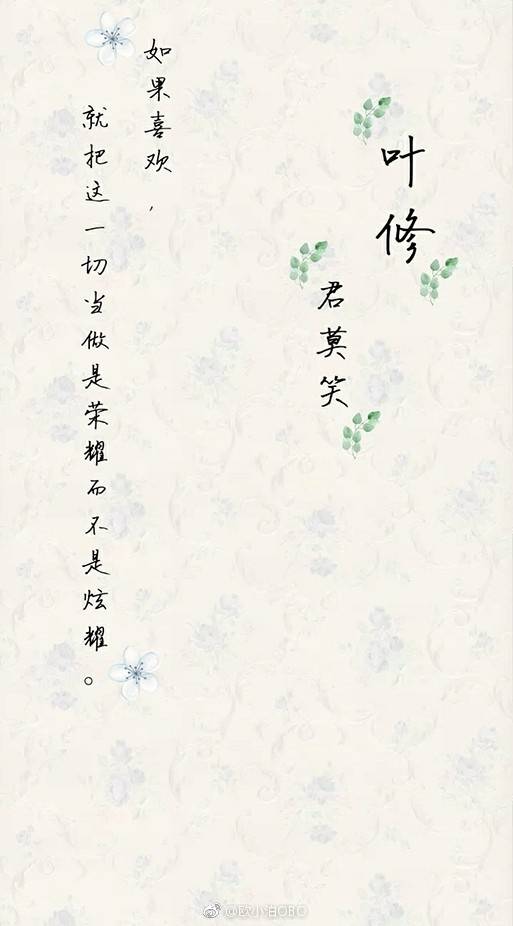 叶修
君莫笑
如果喜欢，
就把这一切当做是荣耀而不是炫耀。
@欧小泊OBO